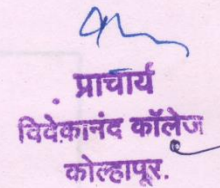 प्राचार्य
विवेकानंद कॉलेज
कोल्हापूर.